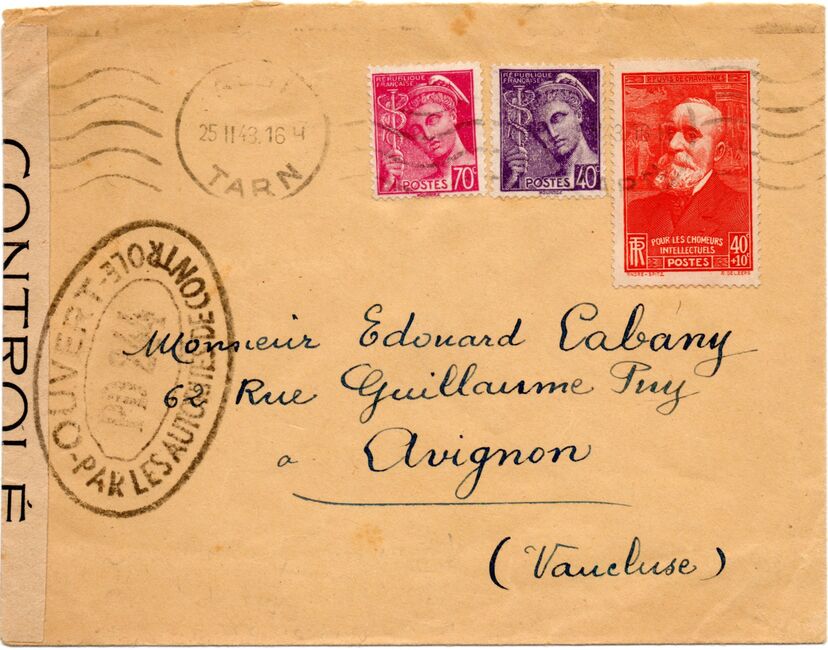 CONTRÔLÉ
25 II 43. 16 H
TARN
RÉPUBLIQUE
FRANÇAISE
POSTES 70c
RÉPUBLIQUE
FRANÇAISE
POSTES 40c
PUVIS DE CHAVANNES
RF
POUR LES CHOMEURS
INTELLECTUELS
POSTES
40c
+10c
OUVERT - PAR LES AUTORITÉS DE CONTROLE -
Monsieur Edouard Cabany
62 Rue Guillaume Puy
a Avignon
(Vaucluse)